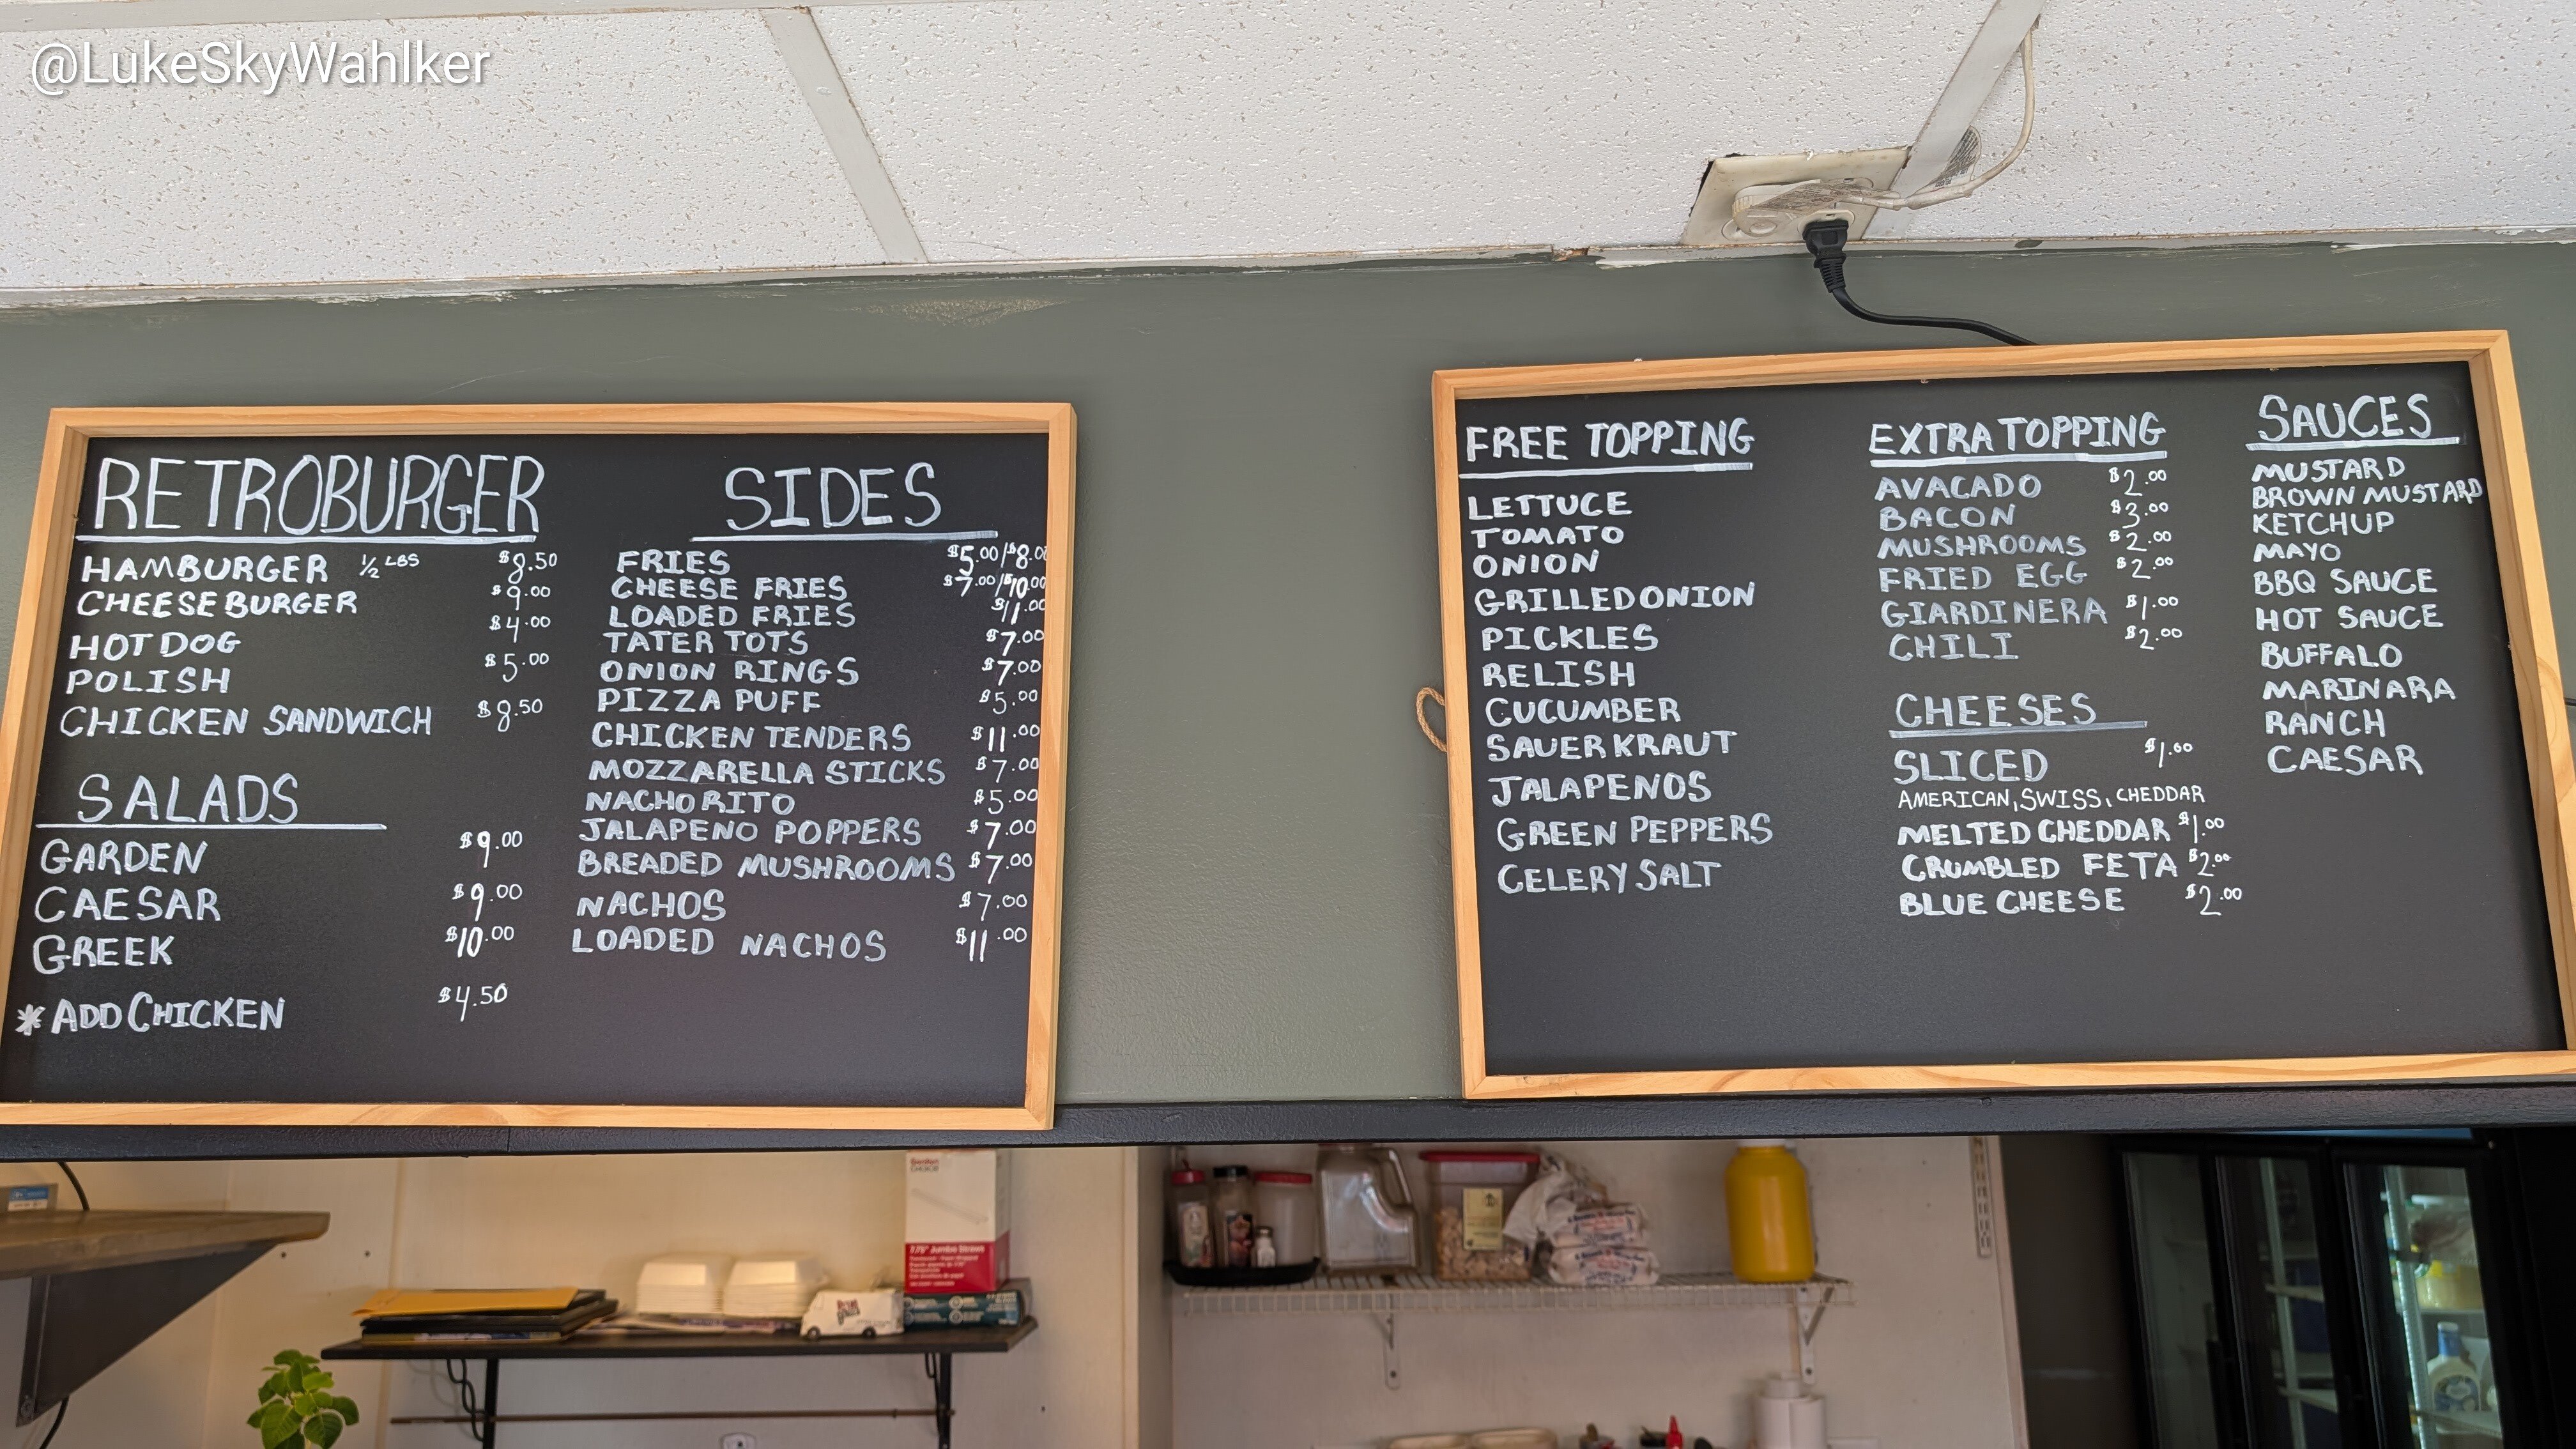 @LukeSkyWahlker
RETROBURGER
HAMBURGER ½ LBS $8.50
CHEESEBURGER $9.00
HOT DOG $4.00
POLISH $5.00
CHICKEN SANDWICH $8.50
SALADS
GARDEN $9.00
CAESAR $9.00
GREEK $10.00
*ADD CHICKEN $4.50
SIDES
FRIES $5.00/$8.00
CHEESE FRIES $7.00/$10.00
LOADED FRIES $11.00
TATER TOTS $7.00
ONION RINGS $7.00
PIZZA PUFF $5.00
CHICKEN TENDERS $11.00
MOZZARELLA STICKS $7.00
NACHORITO $5.00
JALAPENO POPPERS $7.00
BREADED MUSHROOMS $7.00
NACHOS $7.00
LOADED NACHOS $11.00
FREE TOPPING
LETTUCE
TOMATO
ONION
GRILLED ONION
PICKLES
RELISH
CUCUMBER
SAUERKRAUT
JALAPENOS
GREEN PEPPERS
CELERY SALT
EXTRA TOPPING
AVACADO $2.00
BACON $3.00
MUSHROOMS $2.00
FRIED EGG $2.00
GIARDINERA $1.00
CHILI $2.00
CHEESES
SLICED $1.00
AMERICAN, SWISS, CHEDDAR
MELTED CHEDDAR $1.00
CRUMBLED FETA $2.00
BLUE CHEESE $2.00
SAUCES
MUSTARD
BROWN MUSTARD
KETCHUP
MAYO
BBQ SAUCE
HOT SAUCE
BUFFALO
MARINARA
RANCH
CAESAR
7.75" Jumbo Straws